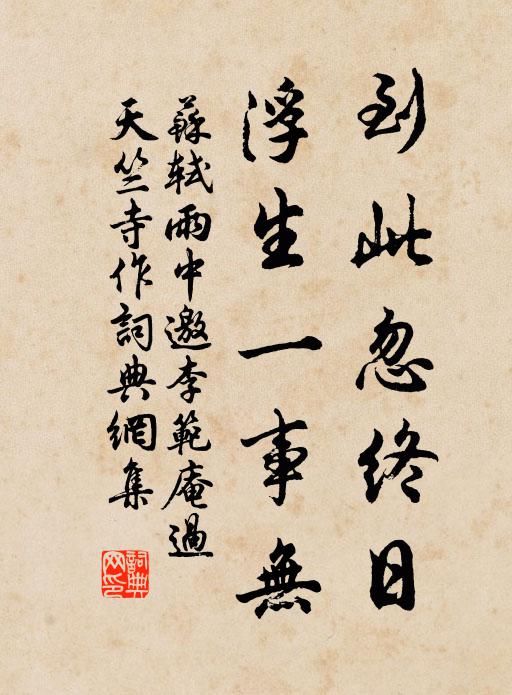 到此忽終日
浮生一事無
蘇軾雨中邀李範庵過
天竺寺作詞典網集
詞典网印